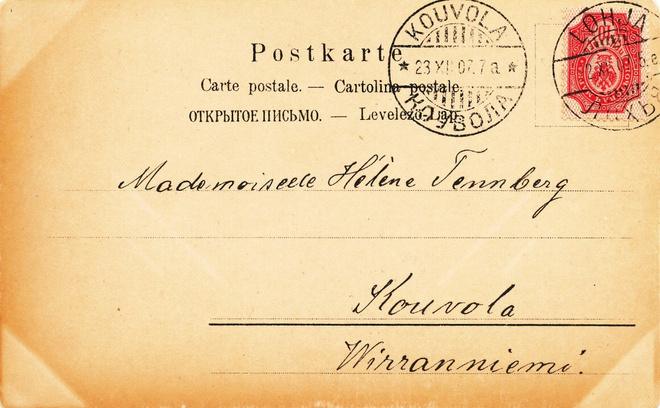 Postkarte
Carte postale. — Cartolina postale.
ОТКРЫТОЕ ПИСЬМО. — Levelező-Lap.
KOUVOLA
23 XII 07. 7 a.
КОУВОЛА
LOHJA
Mademoiselle Hélène Tennberg
Kouvola
Wirranniemi.